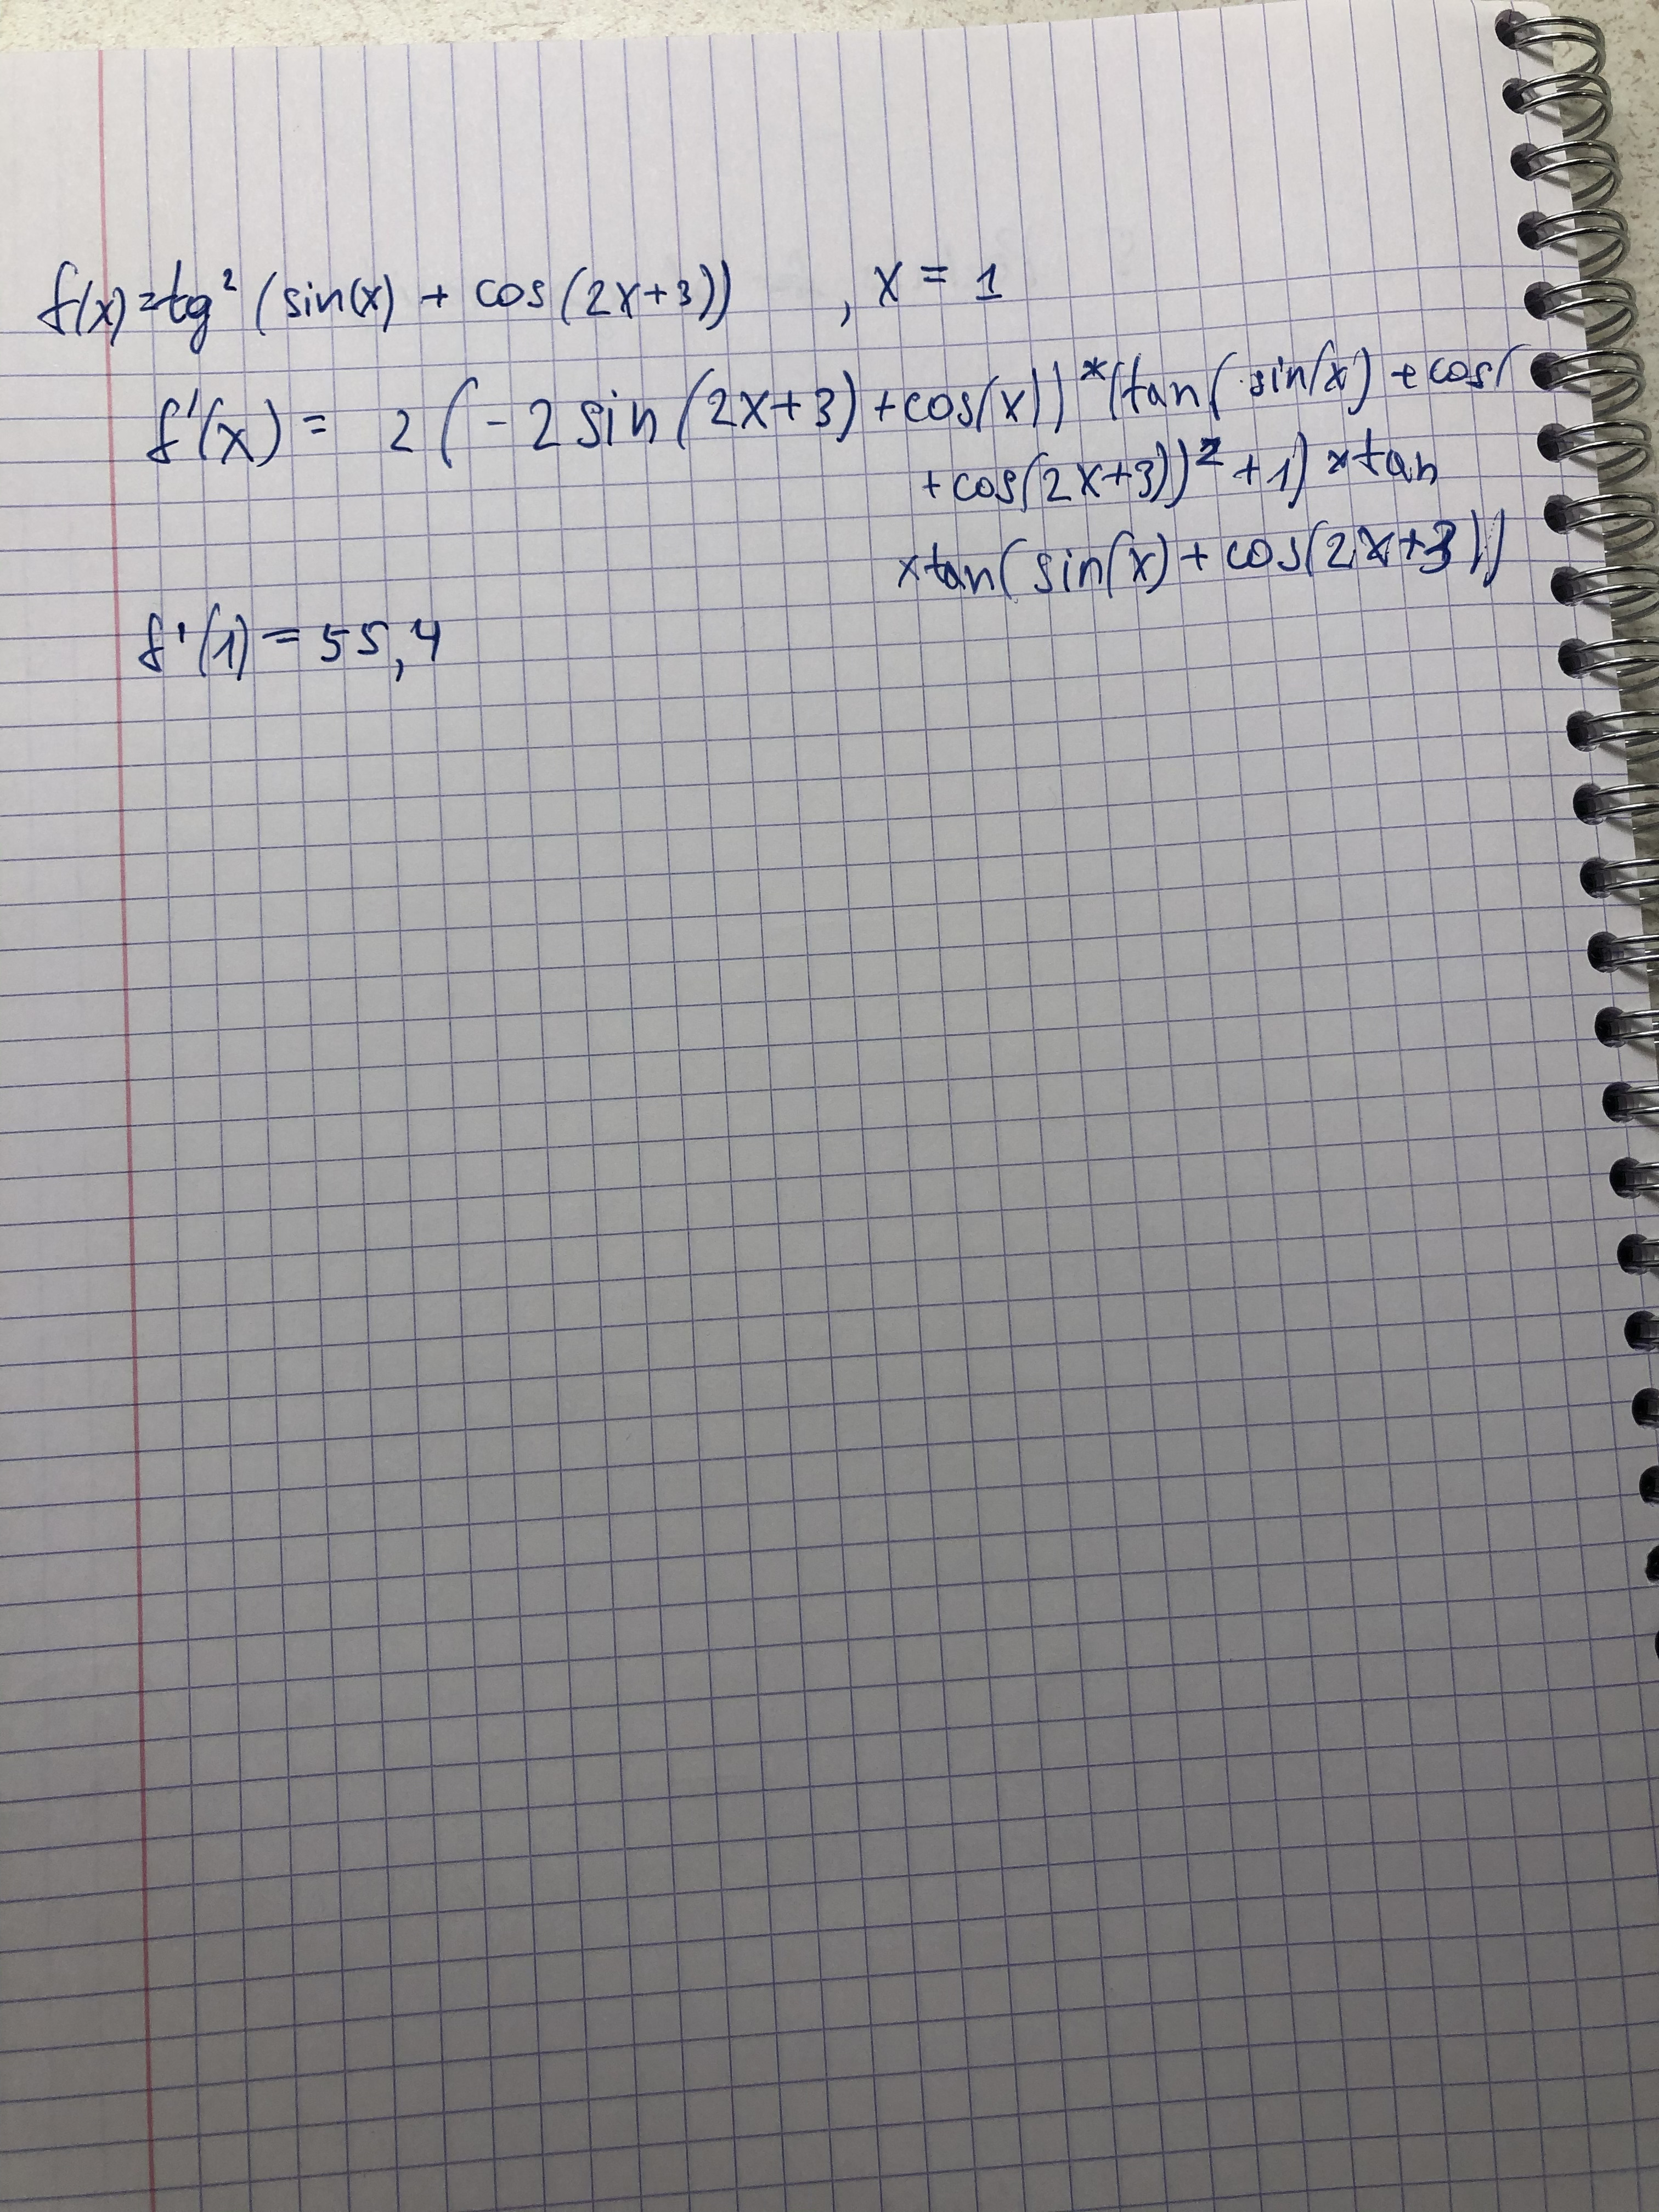 f(x)=tg² (sin(x) + cos(2x+3)) , x = 1
f'(x) = 2(-2sin(2x+3)+cos(x))*(tan(sin(x)+cos(
+cos(2x+3))²+1)*tan
×tan(sin(x)+cos(2x+3))
f'(1)=55,4